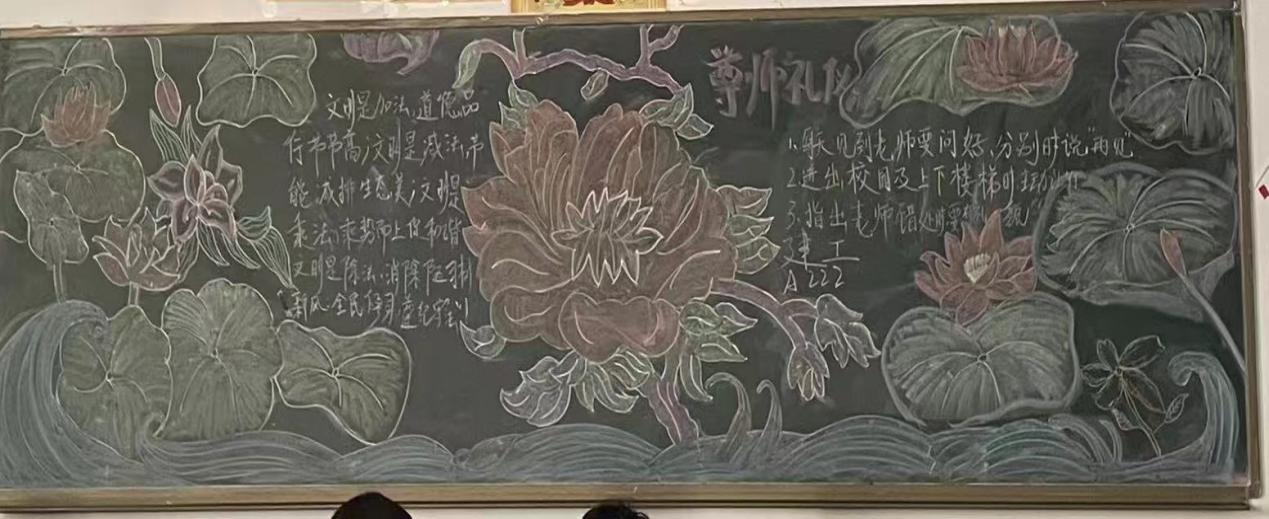 文明是加法,道德品
行节节高;文明是减法,节
能减排生态美;文明是
乘法,乘势而上促和谐
文明是除法,消除陋习
新风全民
尊师礼仪
1.每天见到老师要问好、分别时说"再见"
2.进出校园及上下楼梯时主动
3.指出老师错处时要
建工
A222